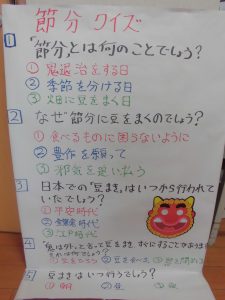 節分 クイズ
1 「節分」とは何のことでしょう？
① 鬼退治をする日
② 季節を分ける日
③ 畑に豆をまく日
2 なぜ節分に豆をまくのでしょう？
① 食べるものに困らないように
② 豊作を願って
③ 邪気を追い払う
3 日本での「豆まき」はいつから行われて
いたでしょう？
① 平安時代
② 鎌倉時代
③ 江戸時代
4 「鬼は外」と言って豆をまき、すぐにすることが
は何でしょう？
② 豆を食べる
5 豆まきはいつ行うでしょう？
① 朝 ② 昼 ③ 夜